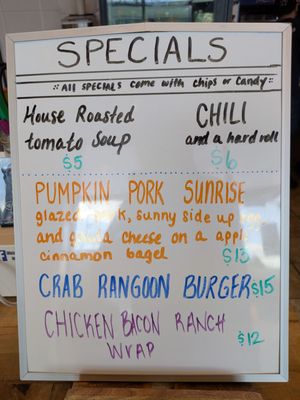 SPECIALS
:: All SPECIALS come with chips or candy ::
House Roasted
tomato soup
$5
CHILI
and a hard roll
$6
PUMPKIN PORK SUNRISE
glazed pork, sunny side up egg
and gouda cheese on a apple
cinnamon bagel $13
CRAB RANGOON BURGER $15
CHICKEN BACON RANCH
WRAP $12